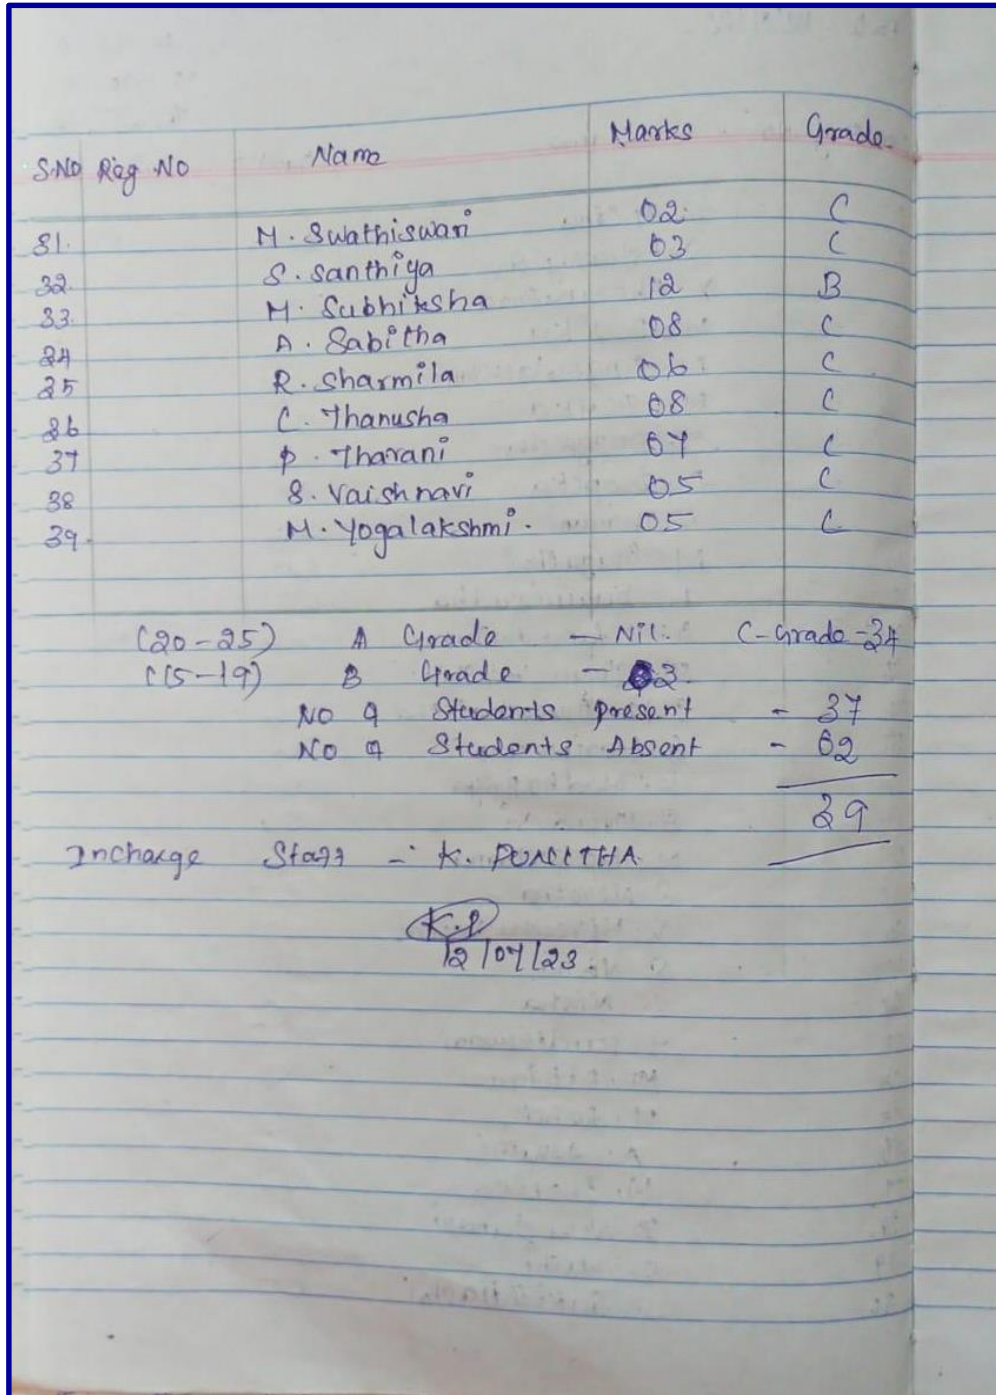 S.NO Reg No Name Marks Grade
31. M. Swathiswari 02. C
32. S. Santhiya 03 C
33. M. Subhiksha 12 B
34 A. Sabitha 08 C
35 R. Sharmila 06 C
36 C. Thanusha 08 C
37 P. Tharani 07 C
38 S. Vaishnavi 05 C
39. M. Yogalakshmi. 05 C
(20-25) A Grade - Nil. C-Grade-34
B Grade - 3.
No of Students Present - 37
No of Students Absent - 02
39
Incharge Staff - K. PUNITHA
K.P
12/07/23.